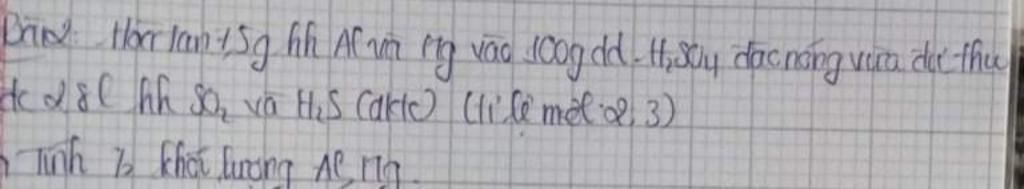 Bài2: Hòa tan 15g hh Al và Mg vào 100g dd H₂SO₄ đặc nóng vừa đủ thu
đc 2,8l hh SO₂ và H₂S (đktc) (tỉ lệ mol 2:3)
Tính % khối lượng Al, Mg.